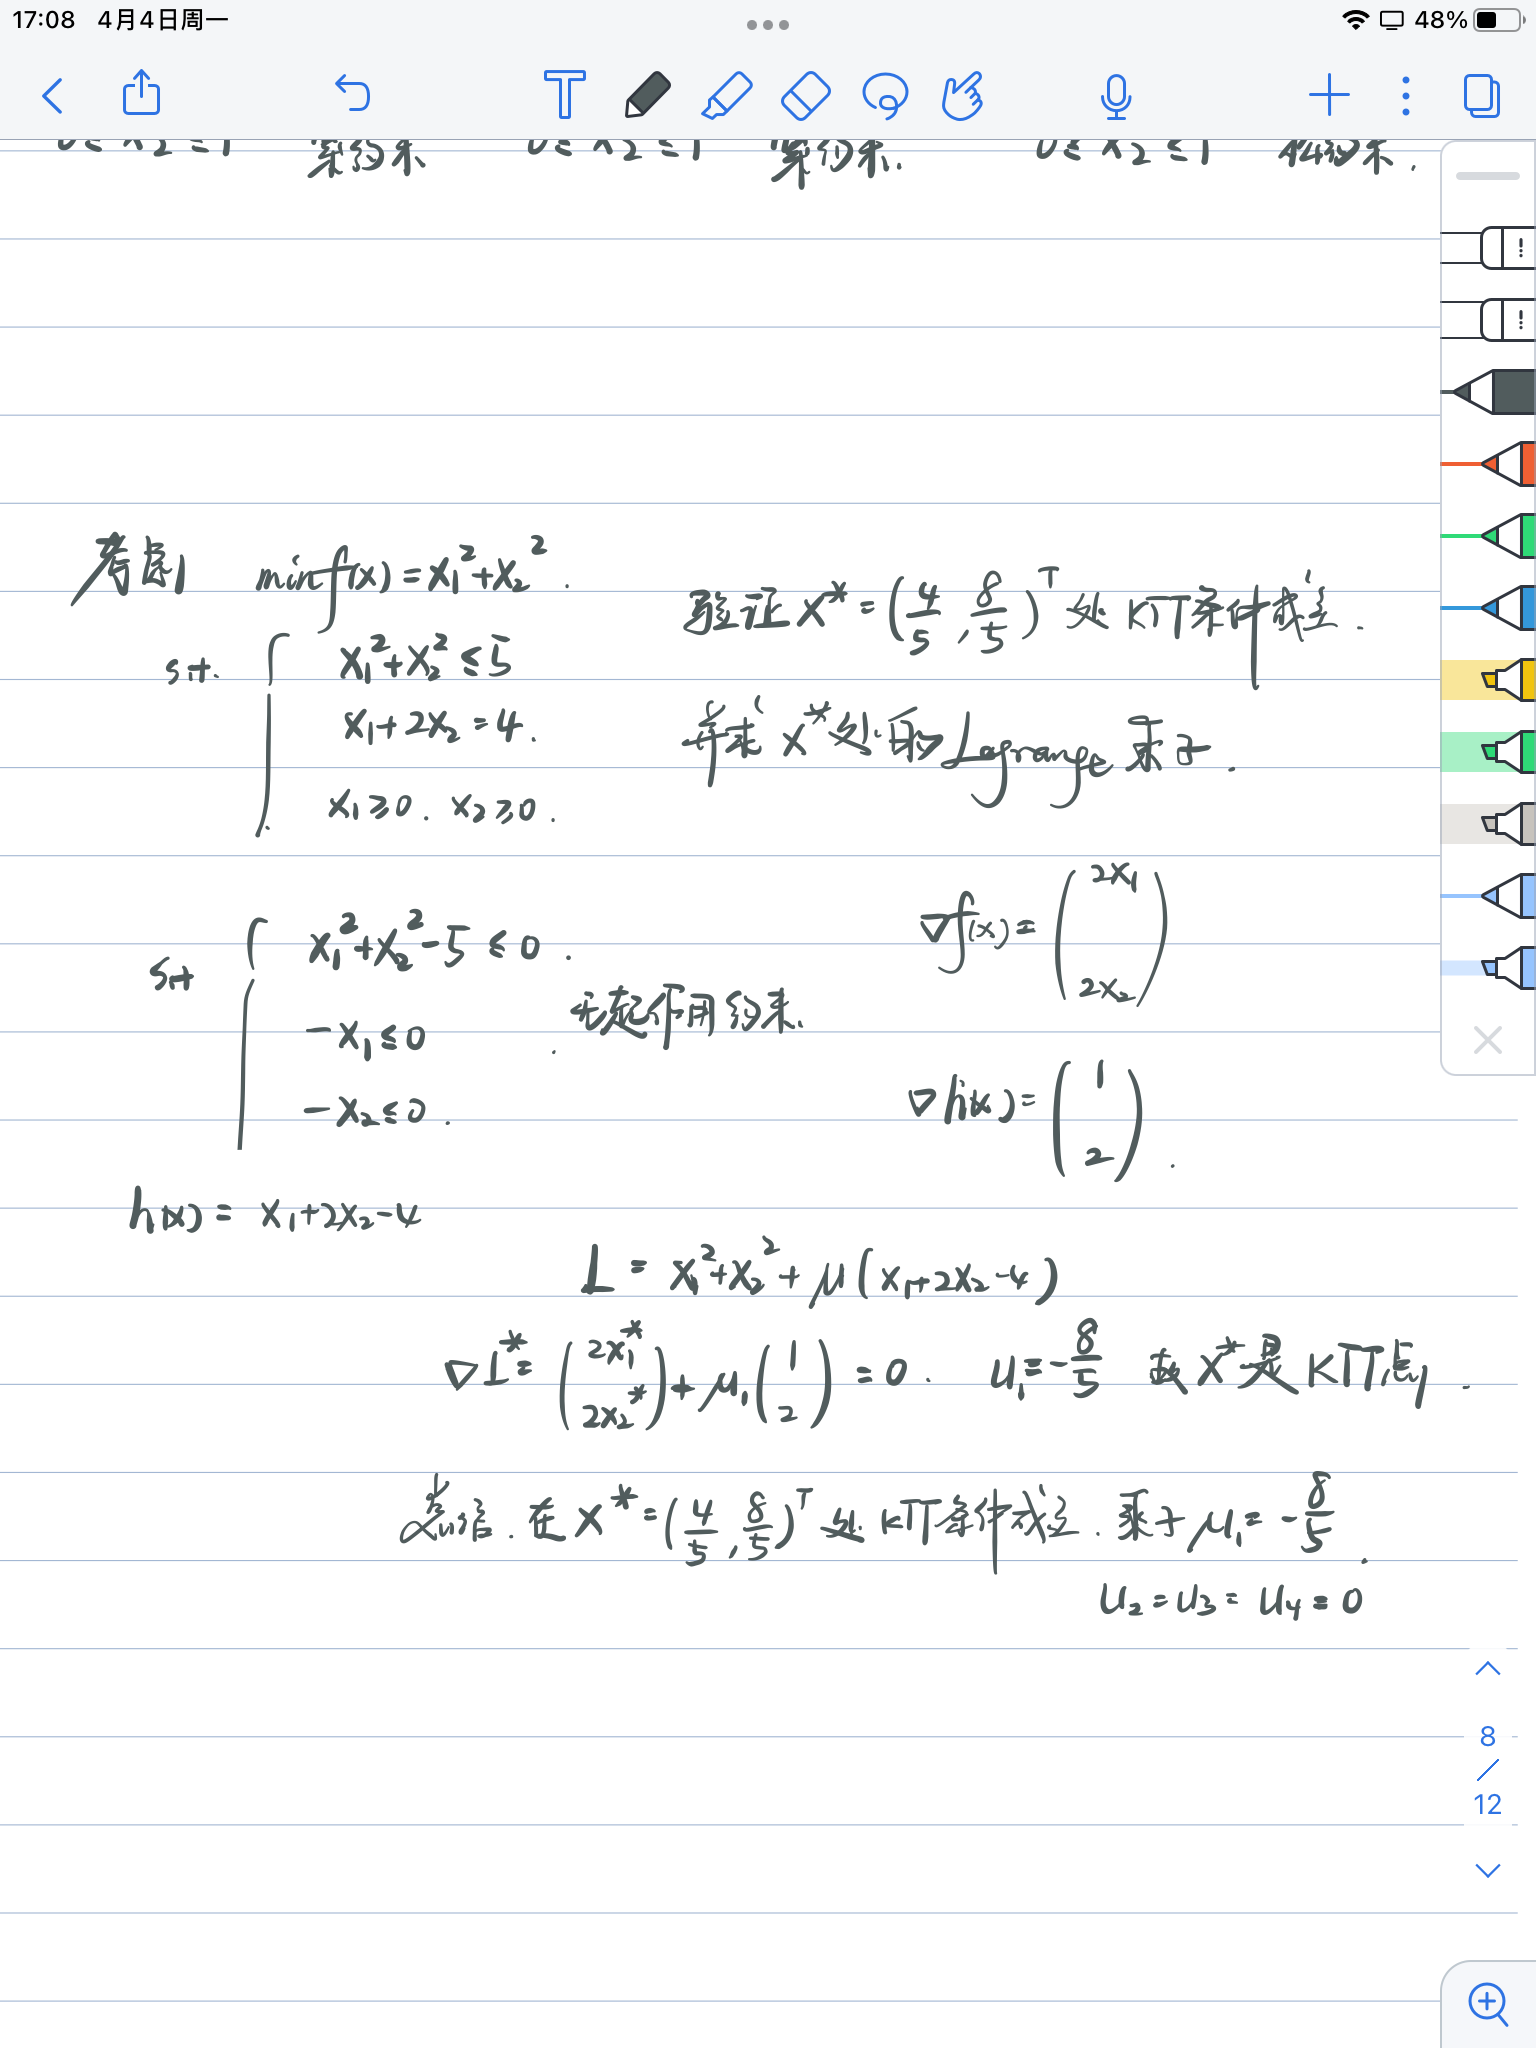 17:08 4月4日周一 48%
0≤x₂≤1 0≤x₂≤1 0≤x₂≤1
考虑 min f(x)=x₁²+x₂².
s.t. x₁²+x₂²≤5
x₁+2x₂=4.
x₁≥0. x₂≥0.
验证 x*=(4/5,8/5)ᵀ 处 KTT条件成立.
并求 x*处的 Lagrange 乘子.
s.t x₁²+x₂²-5≤0.
-x₁≤0
-x₂≤0.
无起作用约束.
h(x)= x₁+2x₂-4
∇f(x)=(2x₁ 2x₂)
∇h(x)=(1 2).
L= x₁²+x₂²+μ(x₁+2x₂-4)
∇L*=(2x₁* 2x₂*)+μ₁(1 2)=0. u₁=-8/5 故 x*是 KTT点.
总结. 在 x*=(4/5,8/5)ᵀ 处 KTT条件成立. 乘子 μ₁=-8/5.
u₂=u₃=u₄=0
8
/
12